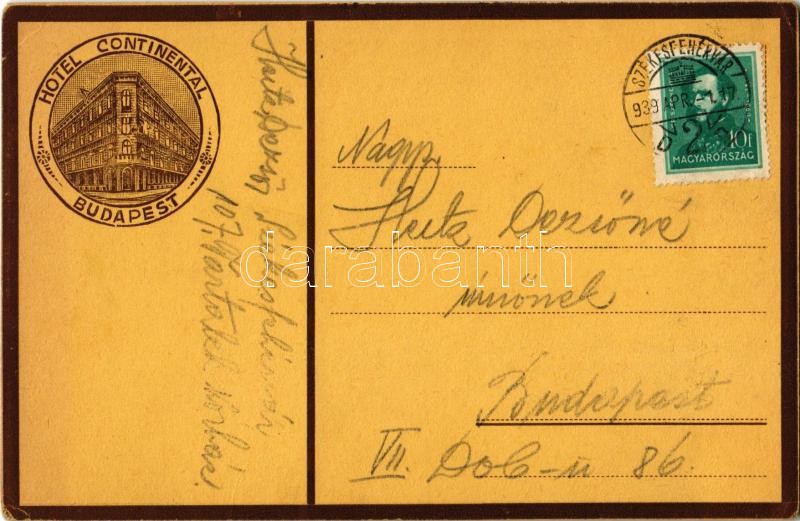 HOTEL CONTINENTAL
BUDAPEST
SZÉKESFEHÉRVÁR
939 APR. 17
10f
MAGYARORSZÁG
Nagys.
Heitz Dezsőné
úrnőnek
Budapest
VII. Dob-u 86.
Heitz Dezső Székesfehérvár
107
darabanth